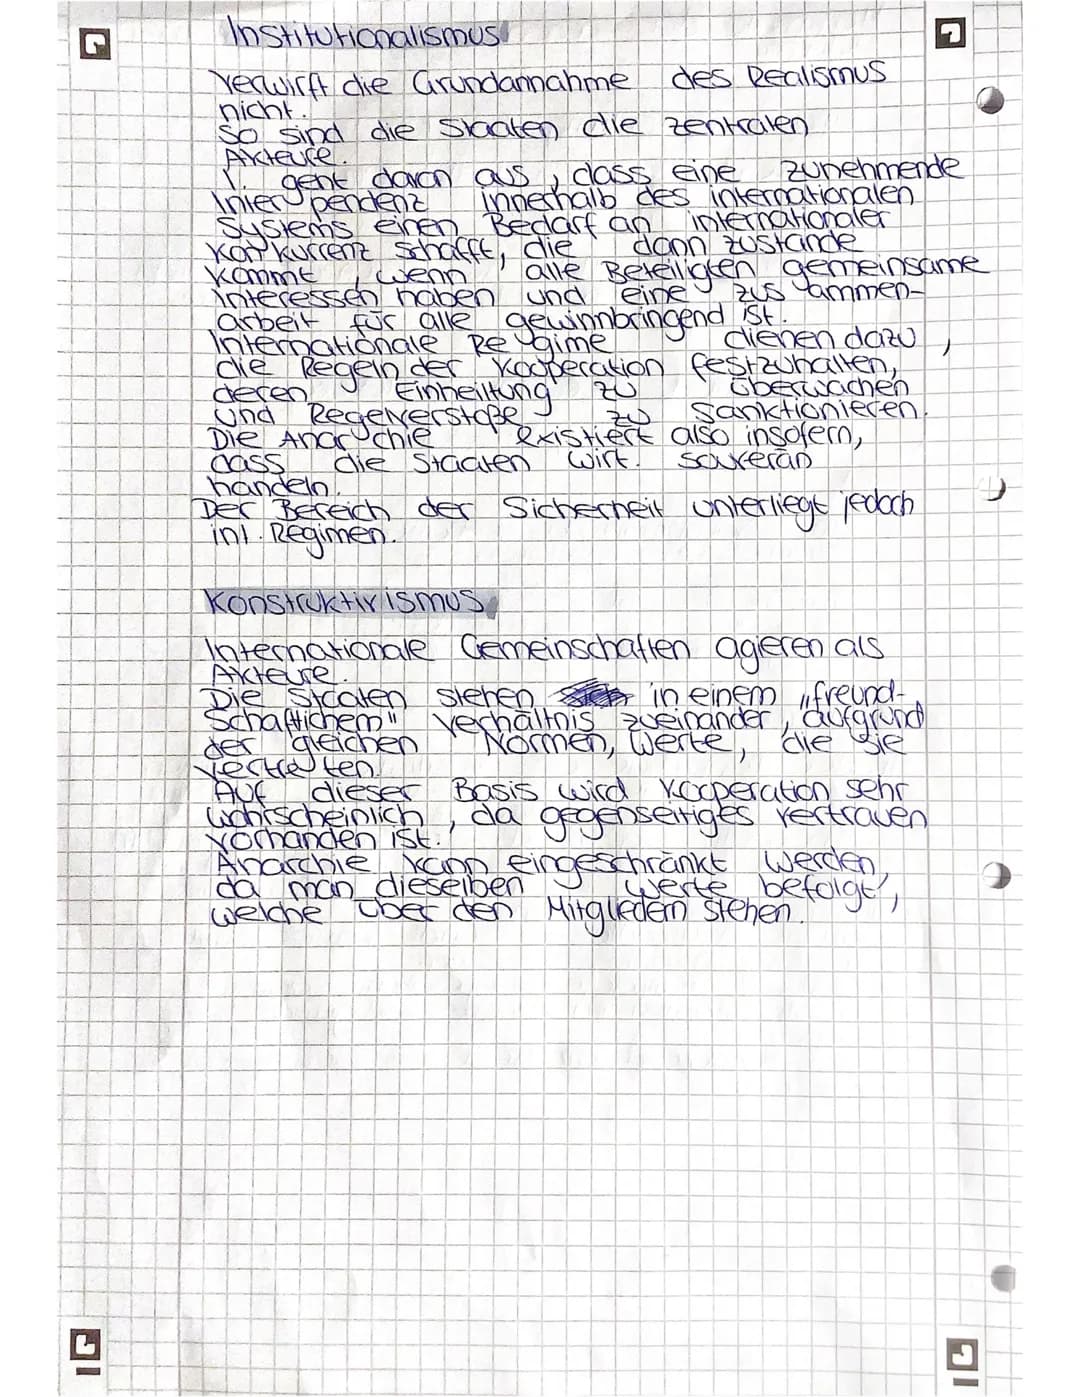 Institutionalismus
Verwirft die Grundannahme des Realismus
nicht.
So sind die Staaten die zentralen
Akteure.
I. geht davon aus, dass eine zunehmende
Interpendenz innerhalb des internationalen
Systems einen Bedarf an internationaler
Konkurrenz schafft, die dann zustande
kommt, wenn alle Beteiligten gemeinsame
Interessen haben und eine zusammen-
arbeit für alle gewinnbringend ist.
Internationale Regime dienen dazu,
die Regeln der Kooperation festzuhalten,
deren Einheiltung zu überwachen
und Regelverstöße zu sanktionieren.
Die Anarchie existiert also insofern,
dass die Staaten wirt. souverän
handeln.
Der Bereich der Sicherheit unterliegt jedoch
int. Regimen.
Konstruktivismus
Internationale Gemeinschaften agieren als
Akteure.
Die Staaten stehen in einem „freund-
schaftichem" Verhältnis zueinander, aufgrund
der gleichen Normen, Werte, die sie
vertreten.
Auf dieser Basis wird Kooperation sehr
wahrscheinlich, da gegenseitiges vertrauen
vorhanden ist.
Anarchie kann eingeschränkt werden,
da man dieselben Werte befolgt,
welche über den Mitgliedern stehen.